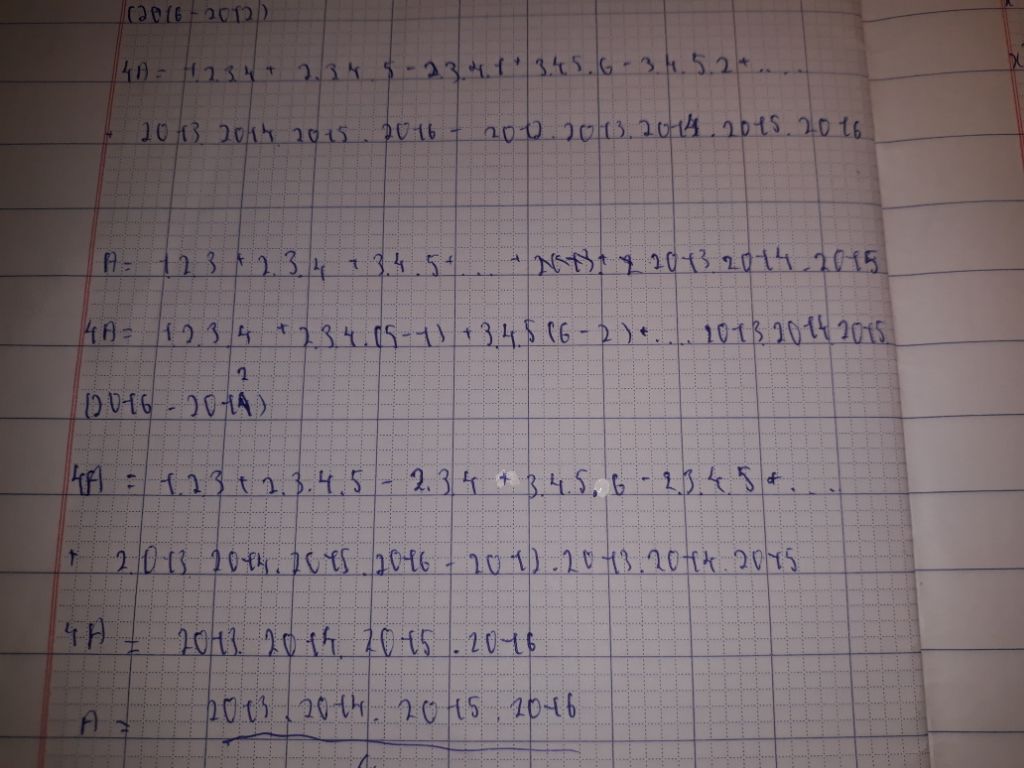 (2016 - 2012)
4A = 1.2.3.4 + 2.3.4.5 - 2.3.4.1 + 3.4.5.6 - 3.4.5.2 + .....
+ 2013.2014.2015.2016 - 2012.2013.2014.2015.2016
A = 1.2.3 + 2.3.4 + 3.4.5 + .... + 2013.2014.2015
4A = 1.2.3.4 + 2.3.4.(5-1) + 3.4.5(6-2) + .... 2013.2014.2015
(2016 - 2012)
4A = 1.2.3 + 2.3.4.5 - 2.3.4 + 3.4.5.6 - 2.3.4.5 + ....
+ 2013.2014.2015.2016 - 2012.2013.2014.2015
4A = 2013.2014.2015.2016
A = 2013.2014.2015.2016